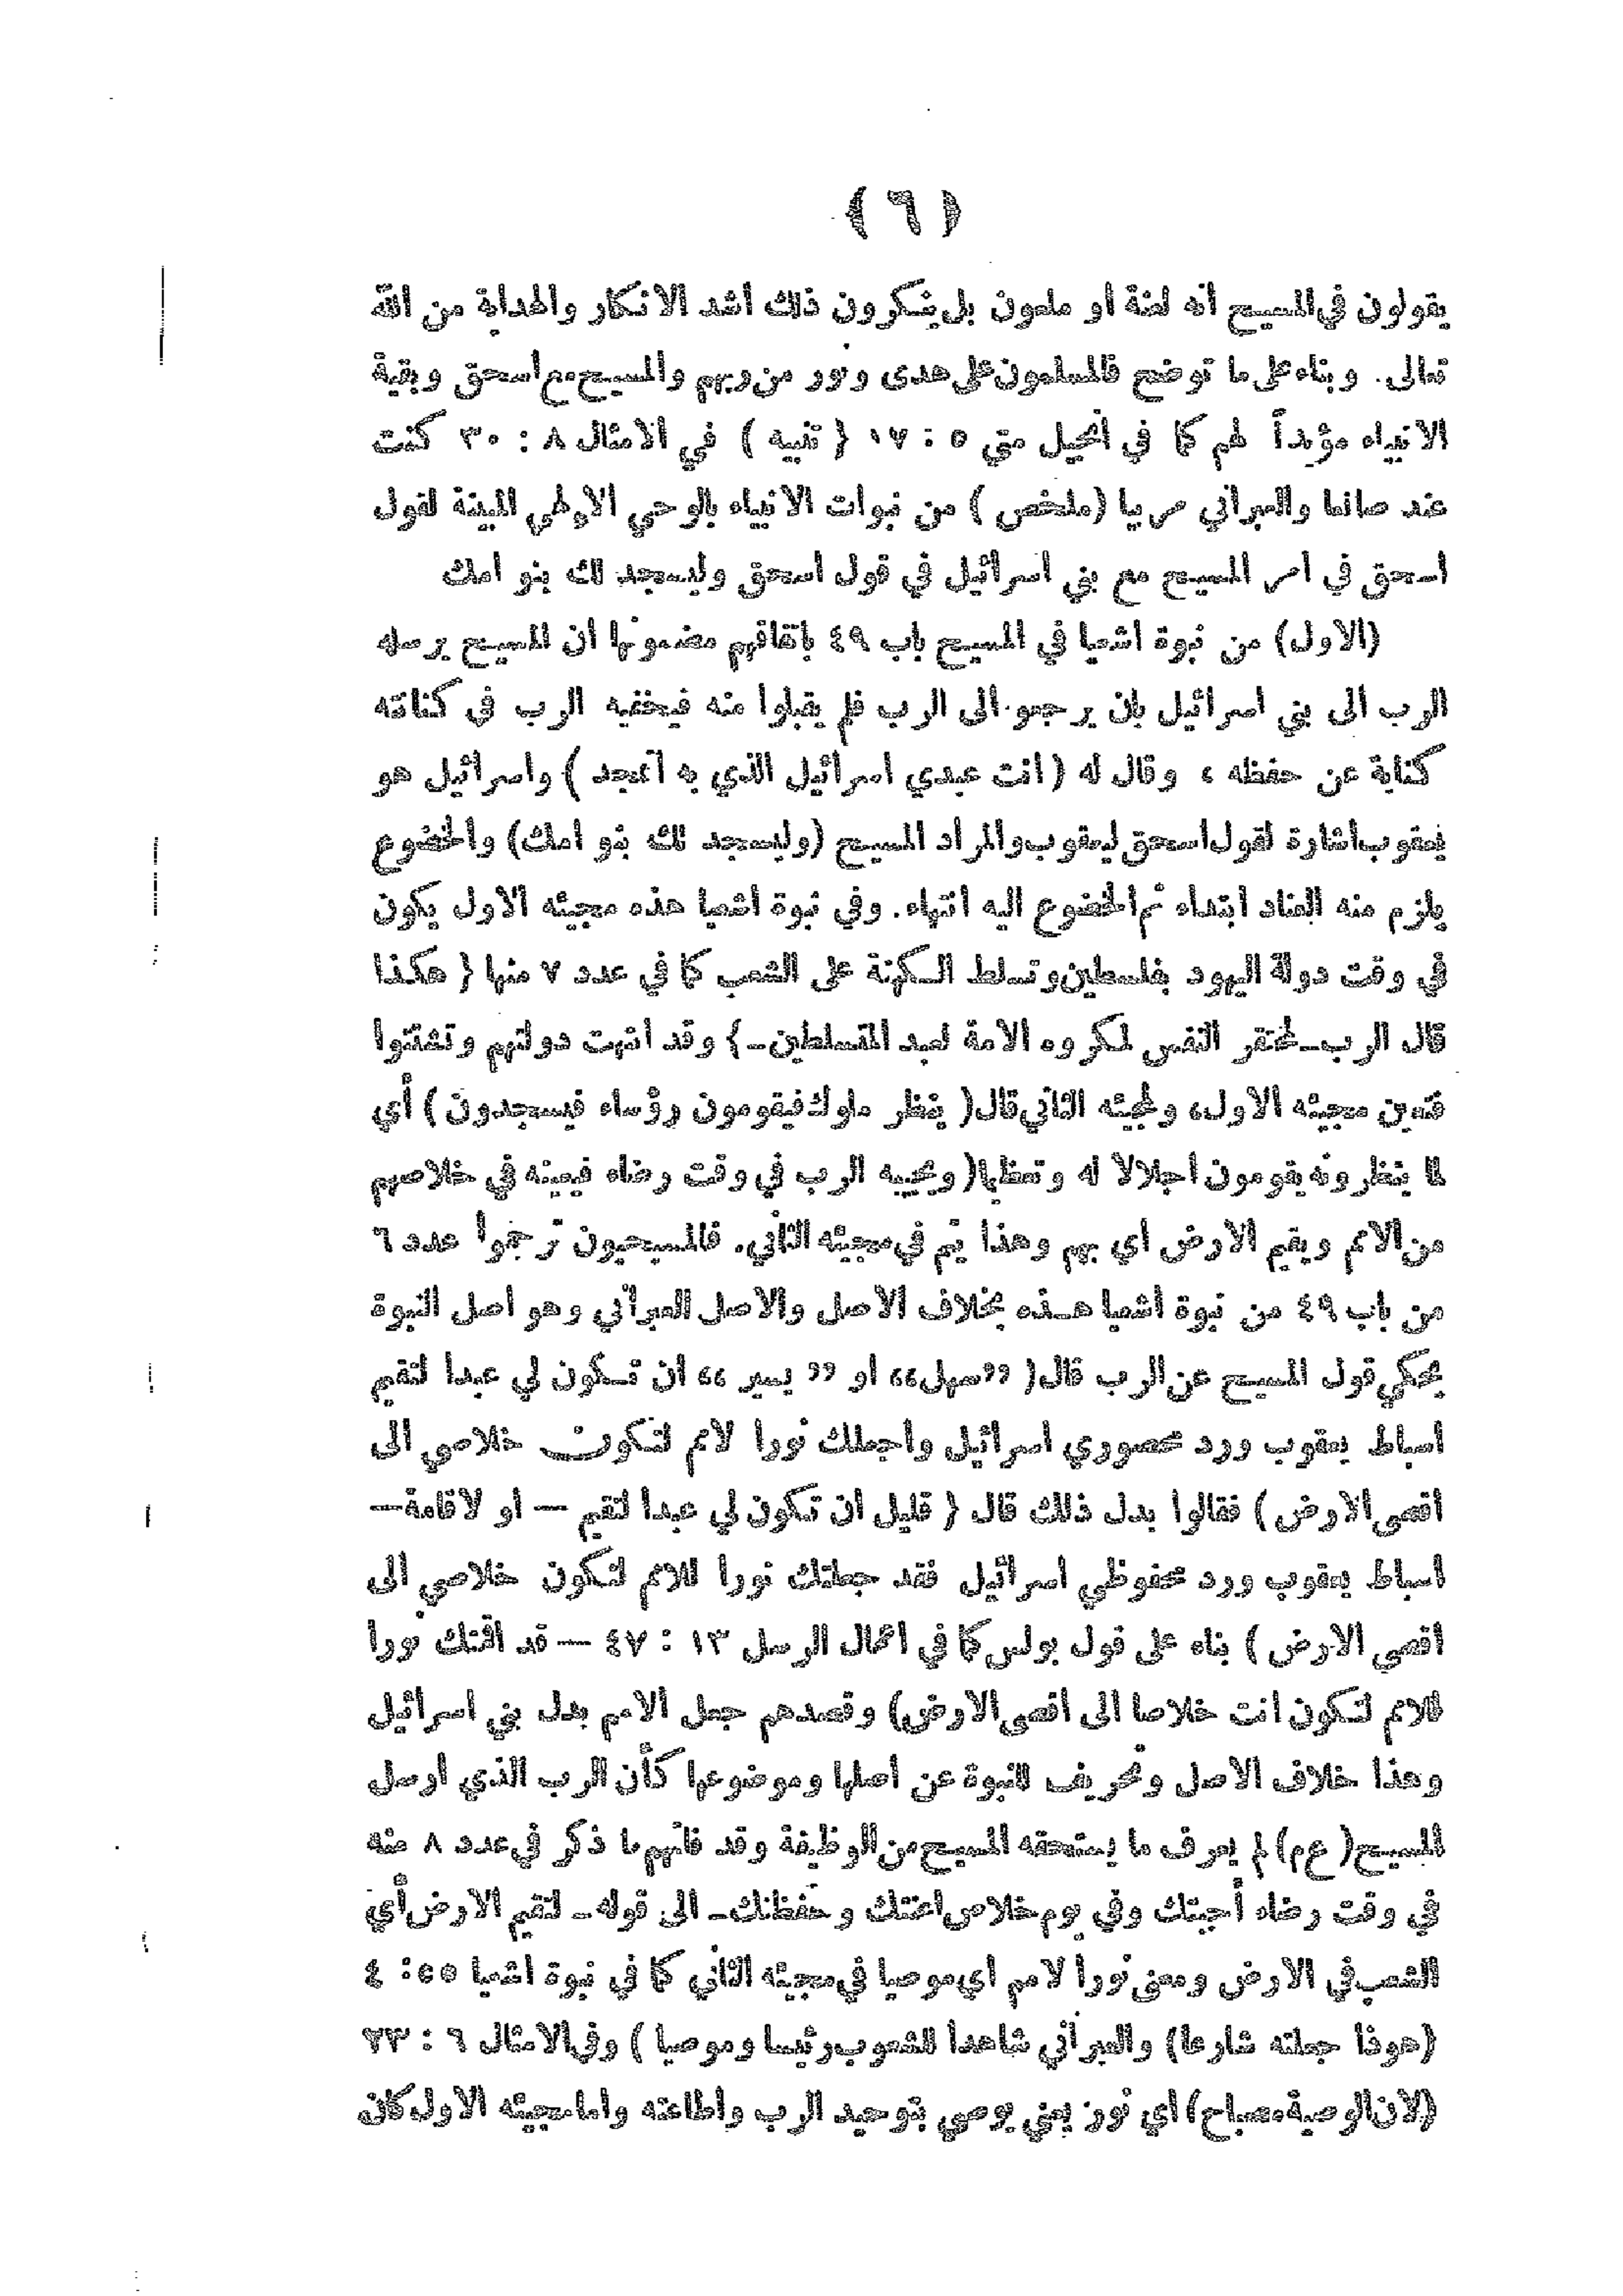 ( ٦ )
يقولون في المسيح أنه لعنة أو ملعون بل ينكرون ذلك اشد الانكار والهداية من الله
تعالى. وبناء على ما توضح فالمسلمون على هدى ونور من ربهم والمسيح مع اسحق وبقية
الانبياء مؤيداً لهم كما في أنجيل متي ٥ : ١٧ ( تنبيه ) في الامثال ٨ : ٣٠ كنت
عند صانعا والعبراني مربيا (ملخص) من نبوات الانبياء بالوحي الإلهي المبينة لقول
اسحق في امر المسيح مع بني اسرائيل في قول اسحق وليسجد لك بنو امك
(الاول) من نبوة اشعيا في المسيح باب ٤٩ باتفاقهم مضمونها ان المسيح يرسله
الرب الى بني اسرائيل بان يرجعو الى الرب فلم يقبلوا منه فيخفيه الرب في كنانته
كناية عن حفظه ، وقال له (انت عبدي اسرائيل الذي به أتمجد ) واسرائيل هو
يعقوب اشارة لقول اسحق ليعقوب والمراد المسيح (وليسجد لك بنو امك) والخضوع
يلزم منه العناد ابتداء ثم الخضوع اليه انتهاء. وفي نبوة اشعيا هذه مجيئه الاول يكون
في وقت دولة اليهود بفلسطين وتسلط الكهنة على الشعب كما في عدد ٧ منها ( هكذا
قال الرب ـ لمحتقر النفس لمكروه الامة لعبد المتسلطين ـ ) وقد انتهت دولتهم وتشتتوا
فتعين مجيئه الاول، ولمجيئه الثاني قال( ينظر ملوك فيقومون رؤساء فيسجدون ) أي
لما ينظرونه يقومون اجلالا له وتعظيما( ويجيبه الرب في وقت رضاء فيعينه في خلاصهم
من الامم ويقيم الارض أي بهم وهذا يتم في مجيئه الثاني. فالمسيحيون ترجموا عدد ٦
من باب ٤٩ من نبوة أشعيا هذه بخلاف الاصل والاصل العبراني وهو اصل النبوة
يحكي قول المسيح عن الرب قال( ”سهل“ او ” يسير “ ان تكون لي عبدا لتقيم
اسباط يعقوب ورد محصوري اسرائيل واجعلك نورا لامم لتكون خلاصي الى
أقصى الارض ) فقالوا بدل ذلك قال ( قليل ان تكون لي عبدا لتقيم — او لاقامة —
اسباط يعقوب ورد محفوظي اسرائيل فقد جعلتك نورا للامم لتكون خلاصي الى
اقصى الارض ) بناء على قول بولس كما في اعمال الرسل ١٣ : ٤٧ — قد اقمتك نورا
للامم لتكون انت خلاصا الى اقصى الارض) وقصدهم جعل الامم بدل بني اسرائيل
وهذا خلاف الاصل وتحريف للنبوة عن أصلها وموضوعها كأن الرب الذي ارسل
المسيح( ع م) لم يعرف ما يستحقه المسيح من الوظيفة وقد فاتهم ما ذكر في عدد ٨ منه
في وقت رضاء أجبتك وفي يوم خلاص اعنتك وحفظتك ـ الى قوله ـ لتقيم الارض أي
الشعب في الارض ومعنى نورا لامم اي موصيا في مجيئه الثاني كما في نبوة اشعيا ٥٥: ٤
(هوذا جعلته شارعا) والعبراني شاهدا للشعوب رئيسا وموصيا ) وفي الامثال ٦ : ٢٣
(لان الوصية مصباح) اي نور يعني يوصي بتوحيد الرب واطاعته واما مجيئه الاول كان